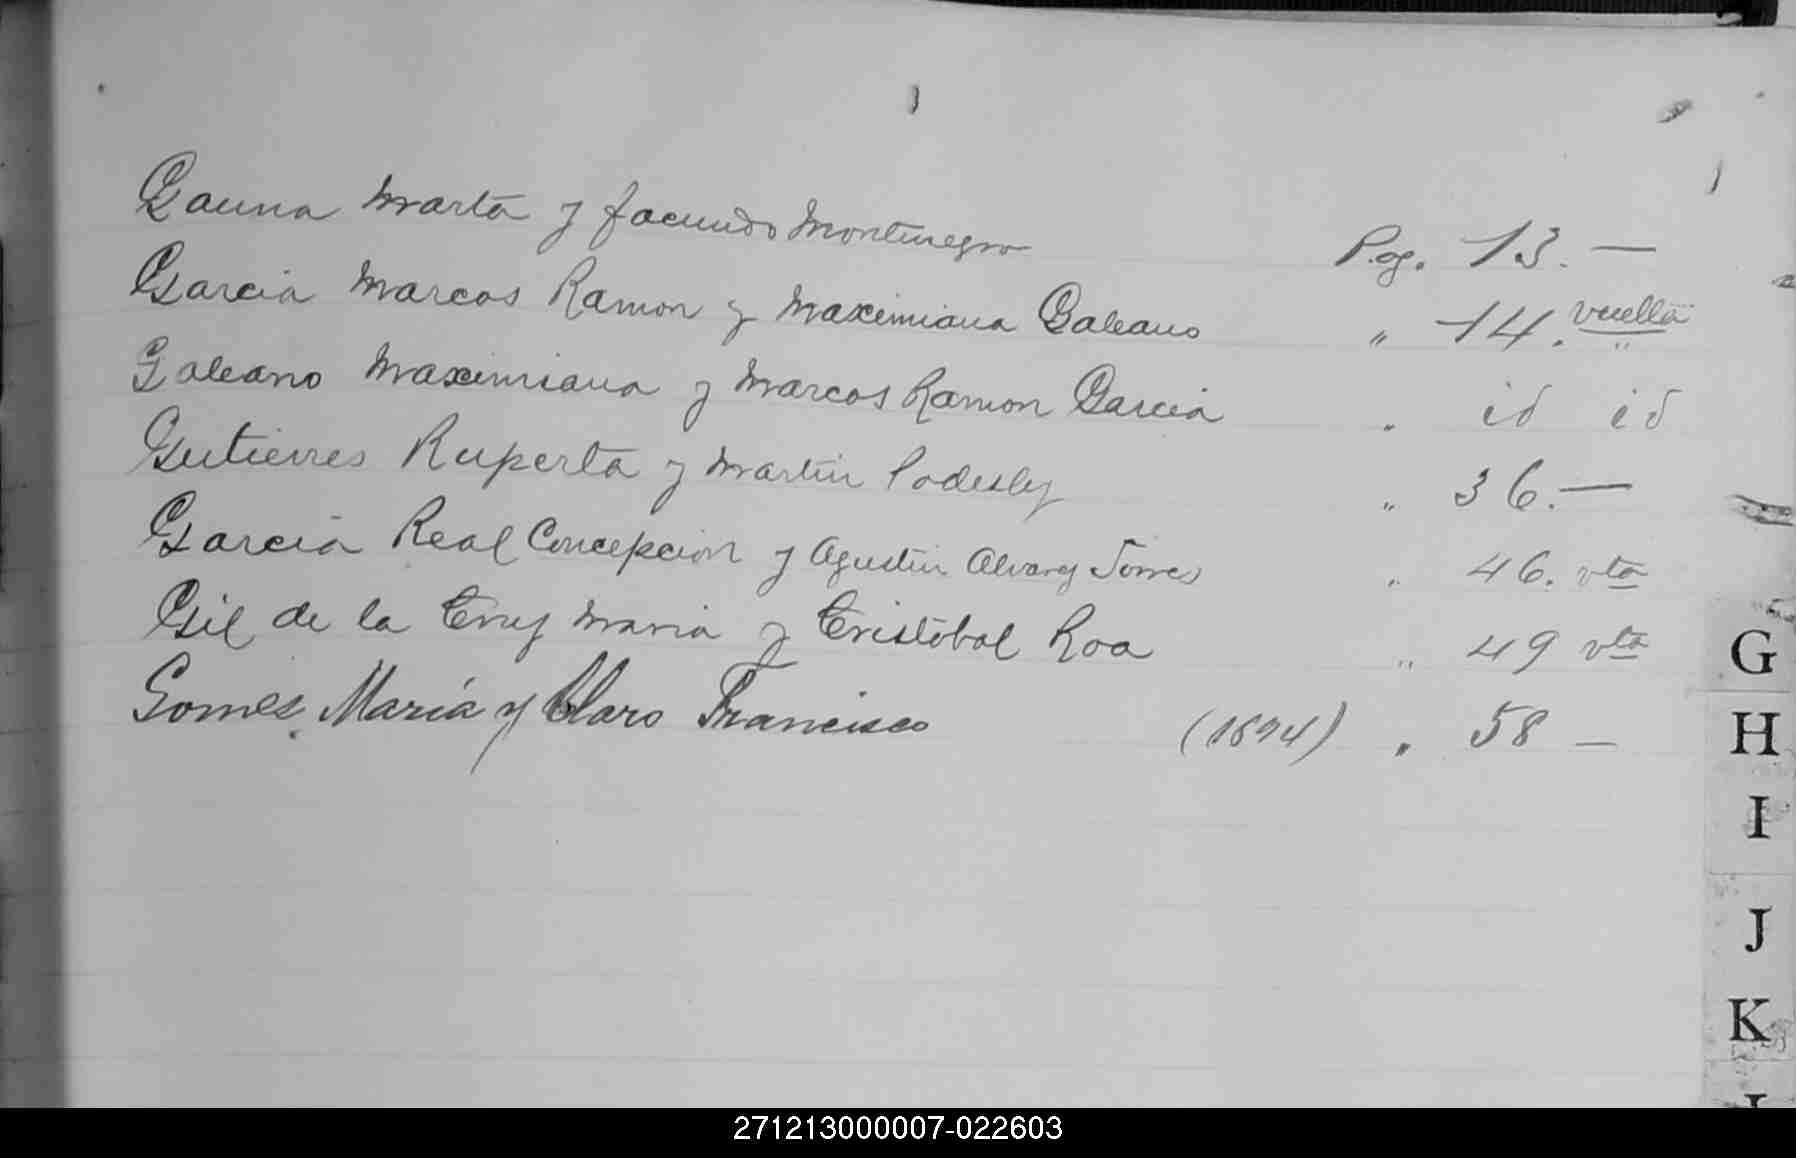 Gauna Marta y Facundo Montenegro Pag. 13. —
Garcia Marcos Ramon y Maximiana Galeano " 14. vuelta
Galeano Maximiana y Marcos Ramon Garcia " id id
Gutierres Ruperta y Martin " 36. —
Garcia Real Concepcion y Agustin Alvarez Torres " 46. vta
Gil de la Cruz Maria y Cristobal Roa " 49 vta
Gomes María y Claro Francisco (1894) " 58 —
G
H
I
J
K
271213000007-022603